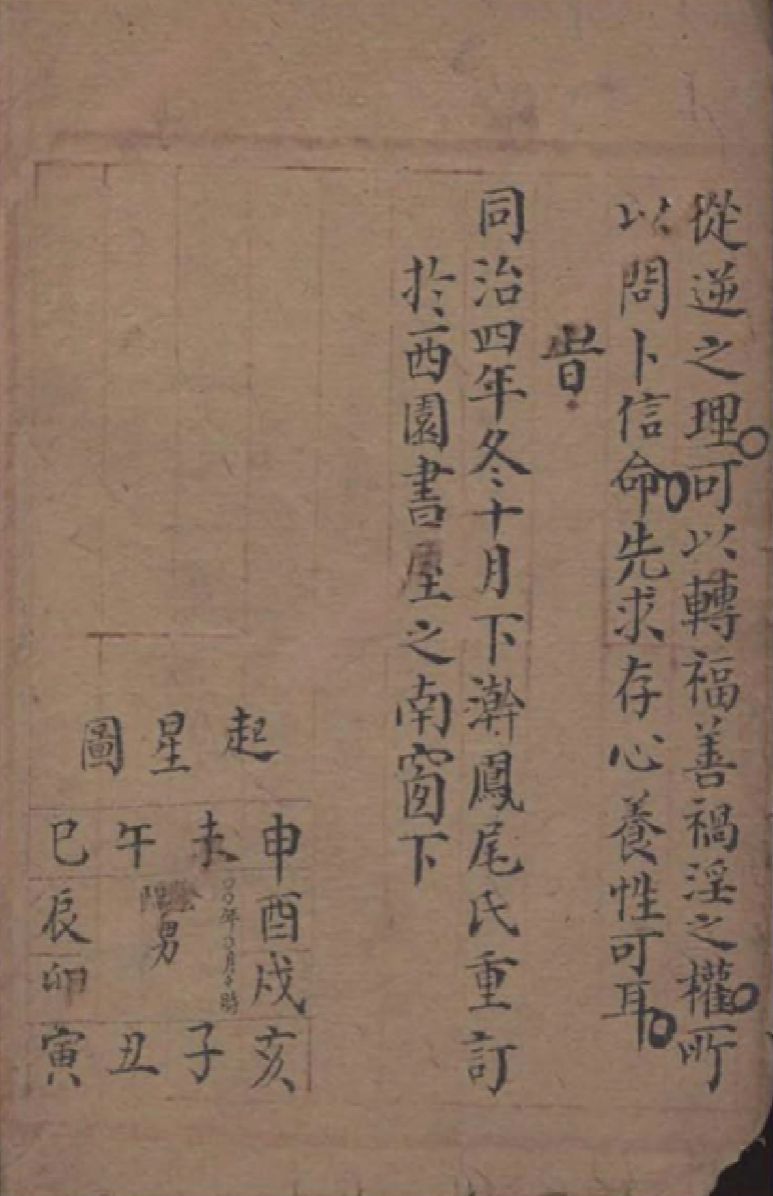 從逆之理可以轉福善禍淫之權所
以問卜信命先求存心養性可耳
昔
同治四年冬十月下澣鳳尾氏重訂
於西園書屋之南窗下
起星圖
申未午巳
酉辰
戌卯
亥子丑寅
〇〇年〇月〇時
陰陽男